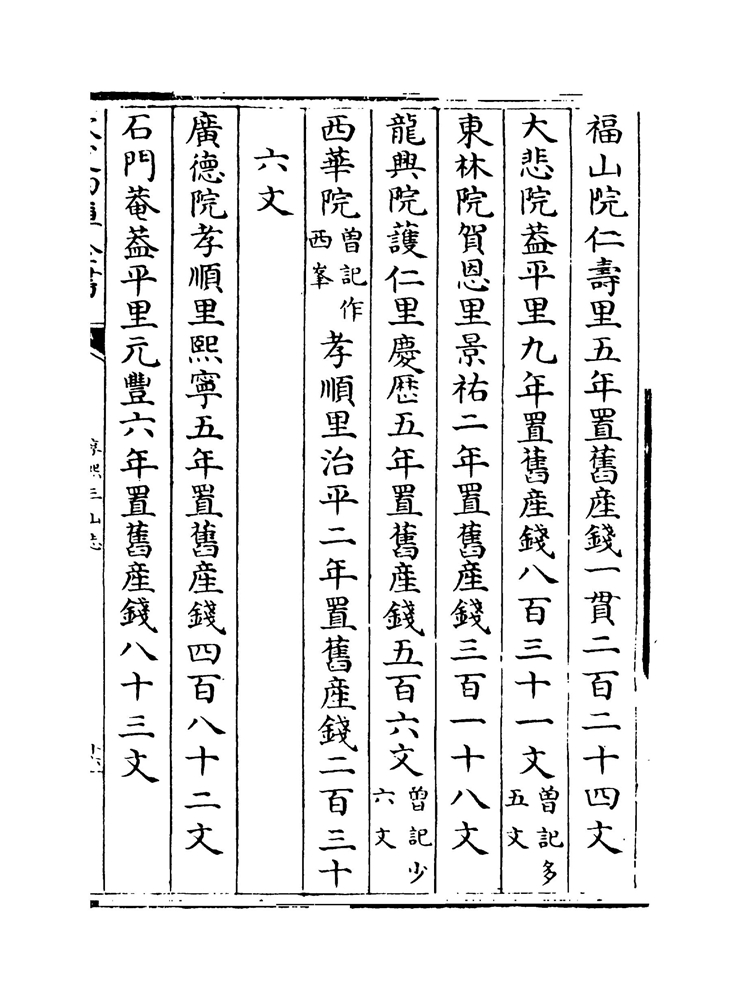 福山院仁壽里五年置舊産錢一貫二百二十四文
大悲院葢平里九年置舊産錢八百三十一文曽記多五文
東林院賀恩里景祐二年置舊産錢三百一十八文
龍興院䕶仁里慶厯五年置舊産錢五百六文曽記少六文
西華院曽記作西峯孝順里治平二年置舊産錢二百三十
六文
廣德院孝順里熙寧五年置舊産錢四百八十二文
石門菴葢平里元豐六年置舊産錢八十三文
淳熙三山志